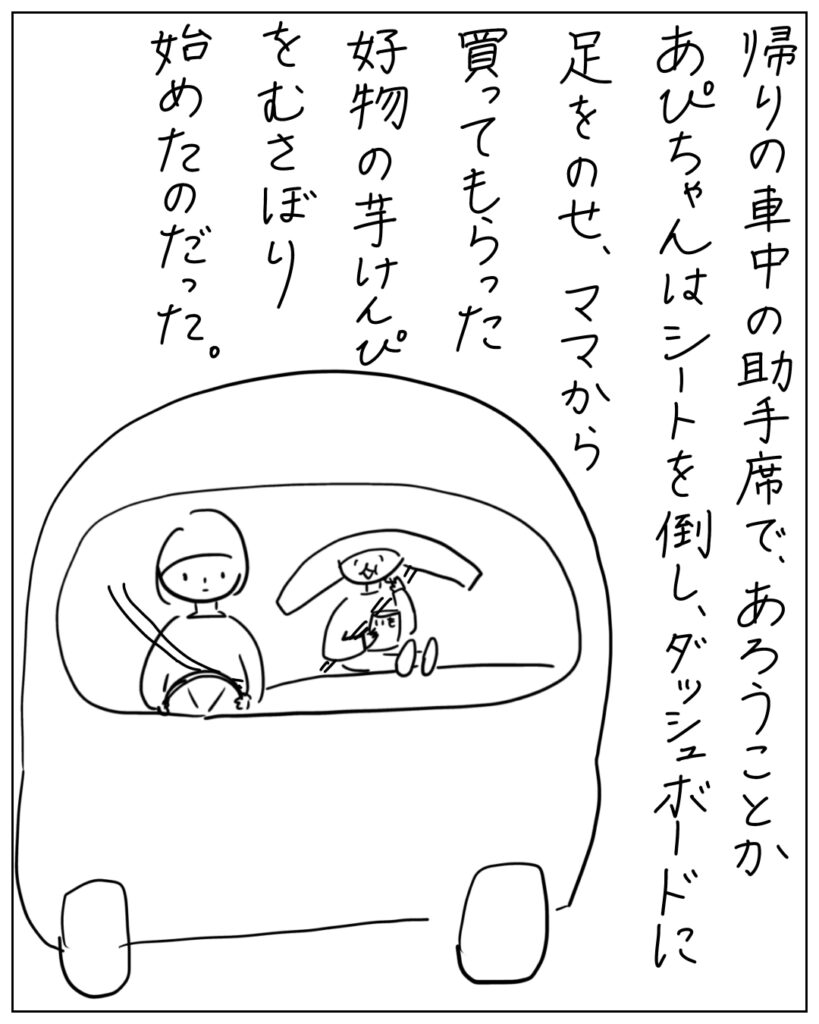 帰りの車中の助手席で、あろうことか
あぴちゃんはシートを倒し、ダッシュボードに
足をのせ、ママから
買ってもらった
好物の芋けんぴ
をむさぼり
始めたのだった。
いも